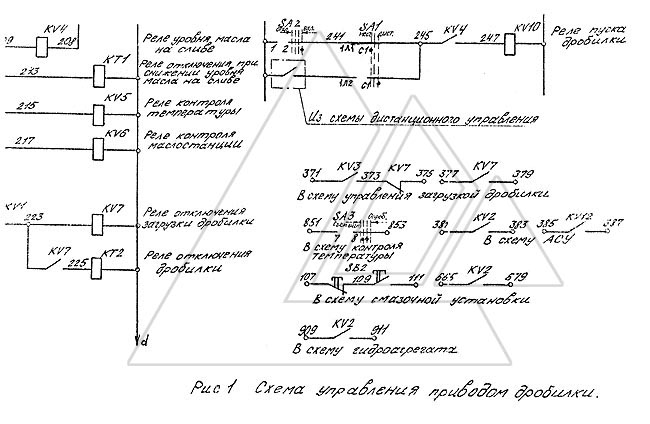 KV4
208
Реле уровня масла
на сливе
KT1
213
Реле отключения при
снижении уровня
масла на сливе
KV5
215
Реле контроля
температуры
KV6
217
Реле контроля
маслостанции
223
KV7
Реле отключения
загрузки дробилки
KV7
225
KT2
Реле отключения
дробилки
d
SA2
1 2
241
SA1
мест. дист.
1Л1 С1
245
KV4
247
KV10
Реле пуска
дробилки
1Л2 С1
Из схемы дистанционного управления
371 KV3 373 KV7 375
377 KV7 379
В схему управления загрузкой дробилки
851 SA3 853
7 8
В схему контроля
температуры
381 KV2 383
385 KV12 387
В схему АСУ
107 SB2 109 111
665 KV2 679
В схему смазочной установки
909 KV2 911
В схему гидроагрегата
Рис 1 Схема управления приводом дробилки.